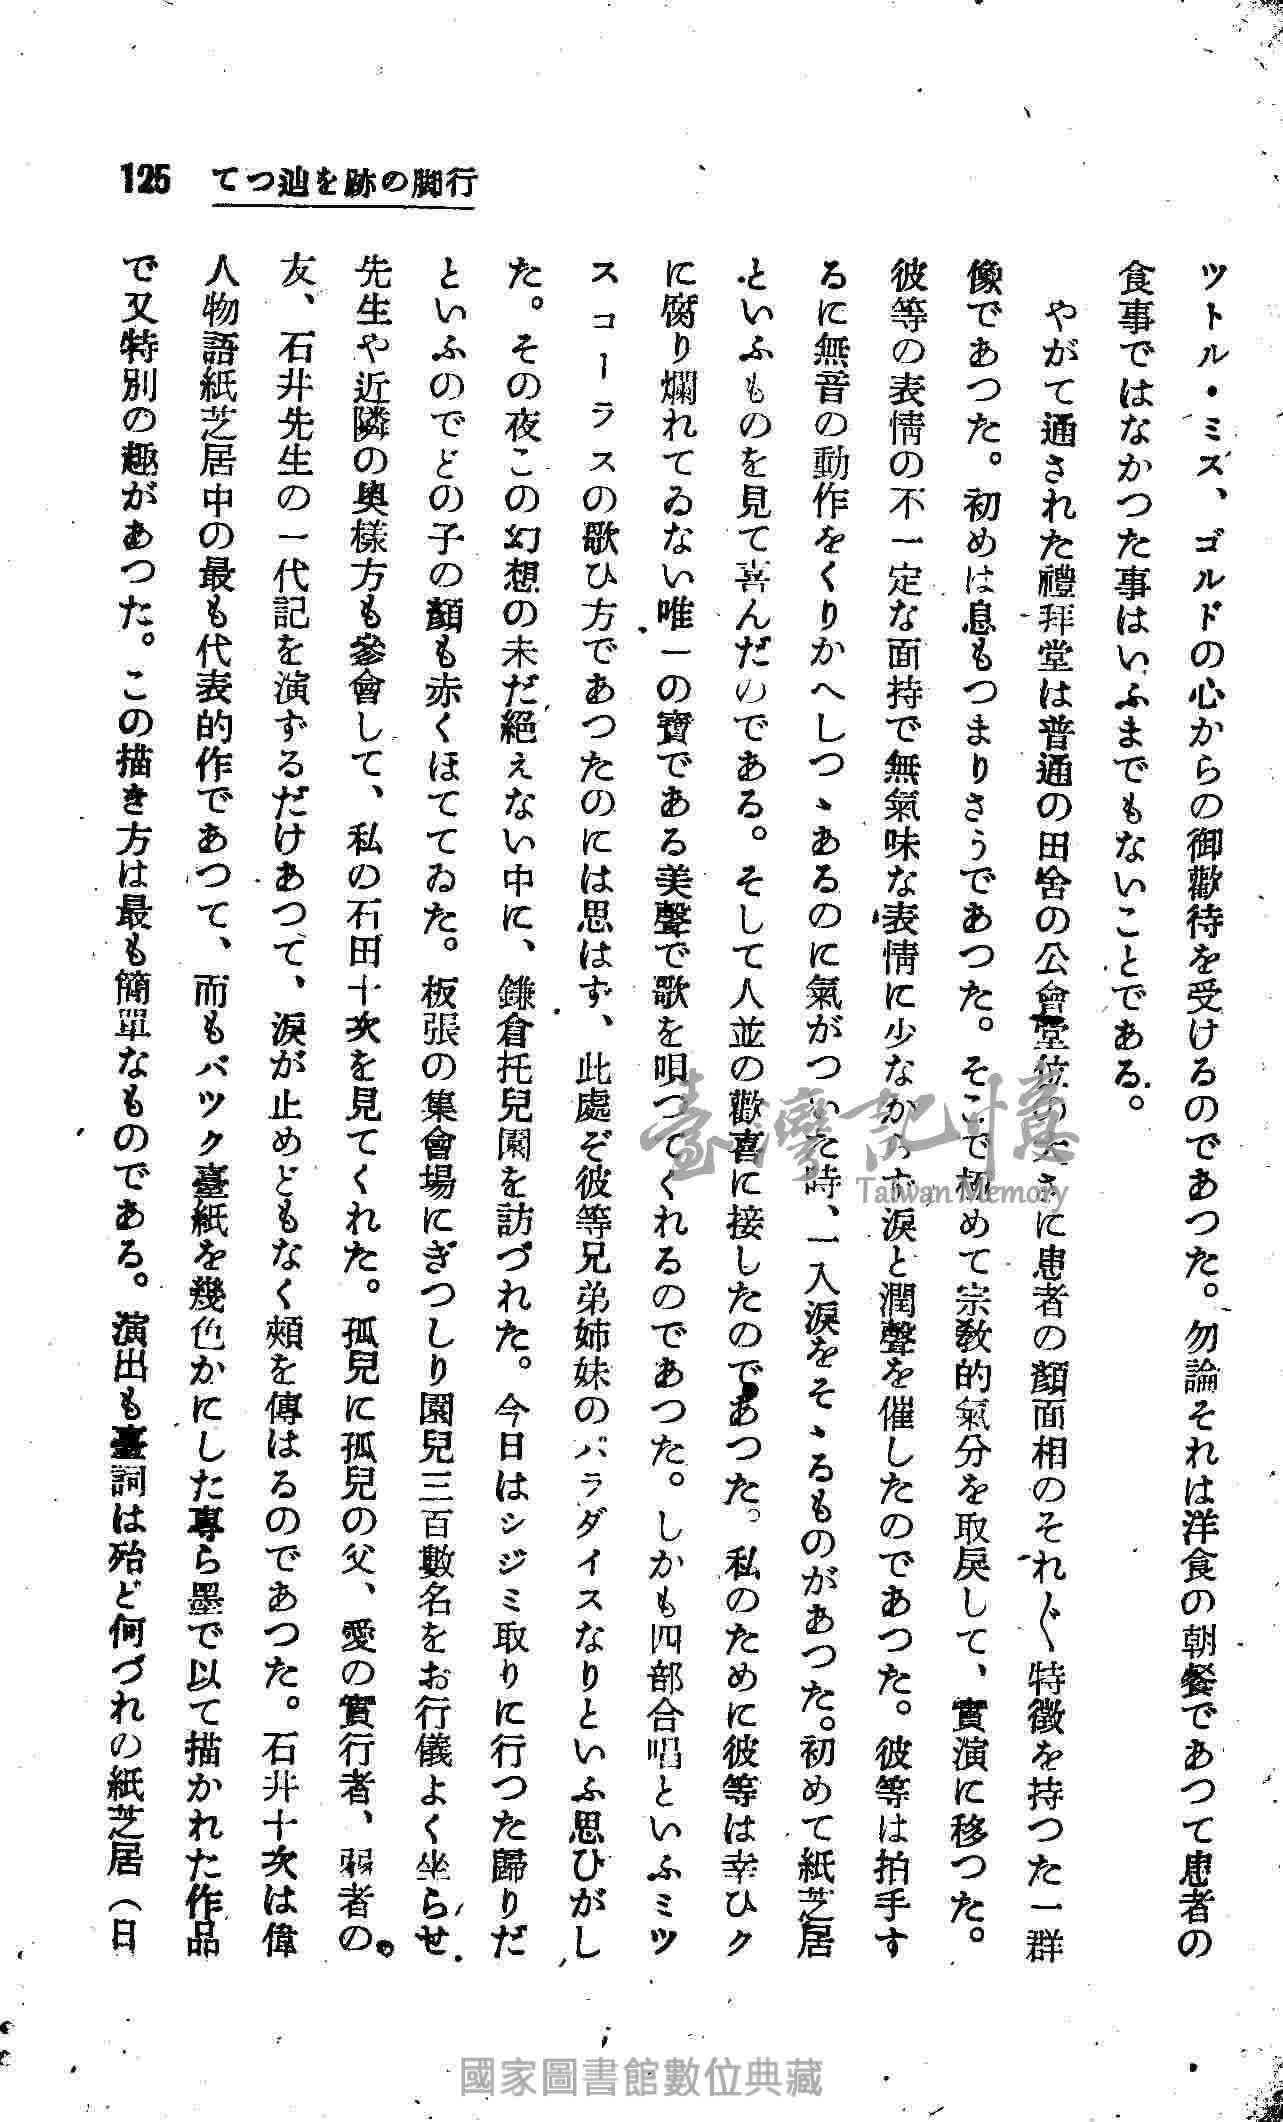 125 てつ辿を跡の脚行
ツトル・ミス、ゴルドの心からの御歡待を受けるのであつた。勿論それは洋食の朝餐であつて患者の
食事ではなかつた事はいふまでもないことである。
やがて通された禮拜堂は普通の田舍の公會堂位の大さに患者の顏面相のそれ〴〵特徴を持つた一群
像であつた。初めは息もつまりさうであつた。そこで極めて宗敎的氣分を取戻して、實演に移つた。
彼等の表情の不一定な面持で無氣味な表情に少なからず淚と潤聲を催したのであつた。彼等は拍手す
るに無音の動作をくりかへしつゝあるのに氣がついた時、一入淚をそゝるものがあつた。初めて紙芝居
といふものを見て喜んだのである。そして人並の歡喜に接したのであつた。私のために彼等は幸ひク
に腐り爛れてゐない唯一の寶である美聲で歌を唄つてくれるのであつた。しかも四部合唱といふミツ
スコーラスの歌ひ方であつたのには思はず、此處ぞ彼等兄弟姉妹のパラダイスなりといふ思ひがし
た。その夜この幻想の未だ絕えない中に、鎌倉托兒園を訪づれた。今日はシジミ取りに行つた歸りだ
といふのでどの子の顏も赤くほててゐた。板張の集會場にぎつしり園兒三百數名をお行儀よく坐らせ
先生や近隣の奥樣方も參會して、私の石田十次を見てくれた。孤兒に孤兒の父、愛の實行者、弱者の
友、石井先生の一代記を演ずるだけあつて、淚が止めどもなく頰を傳はるのであつた。石井十次は偉
人物語紙芝居中の最も代表的作であつて、而もバツク臺紙を幾色かにした專ら墨で以て描かれた作品
で又特別の趣があつた。この描き方は最も簡單なものである。演出も臺詞は殆ど何づれの紙芝居（日
臺灣記憶
Taiwan Memory
國家圖書館數位典藏